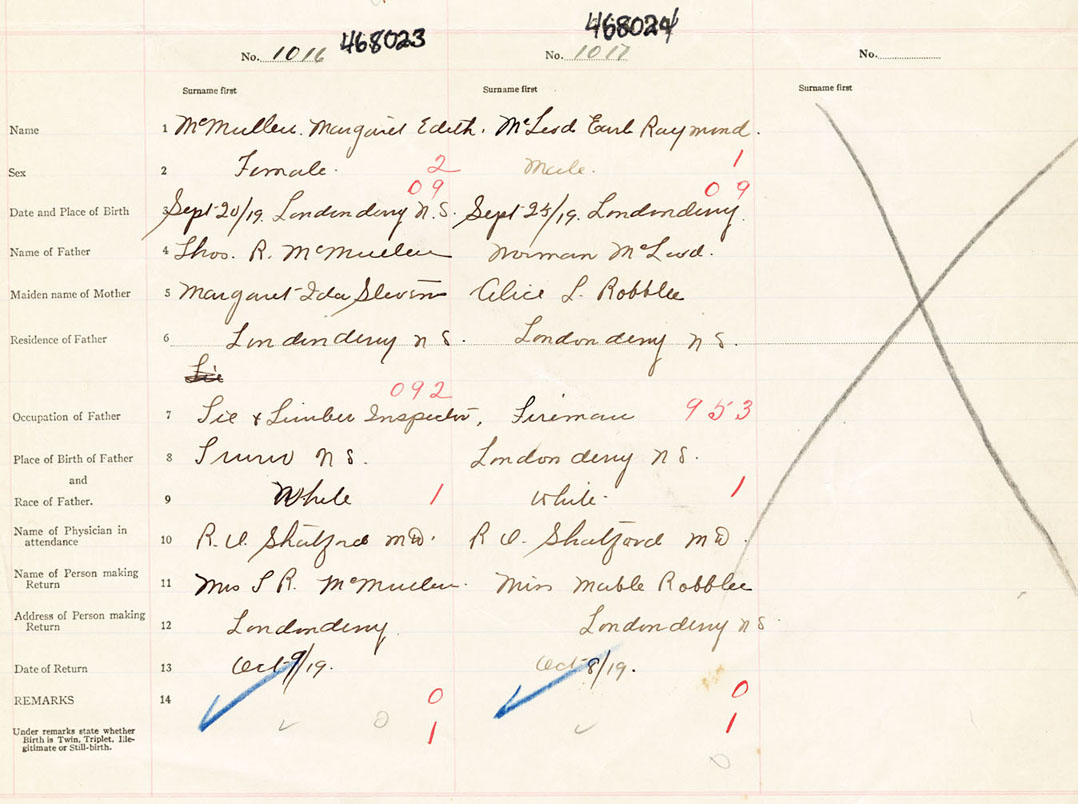 468023 468024
No. 1016 No. 1017 No.
Surname first Surname first Surname first
Name 1 McMullen. Margaret Edith. McLeod Earl Raymond.
Sex 2 Female. 2 Male. 1
09 09
Date and Place of Birth 3 Sept 20/19. Londonderry N.S. Sept 25/19. Londonderry.
Name of Father 4 Thos. R. McMullen Norman McLeod.
Maiden name of Mother 5 Margaret Ida Stevens Alice L. Robblee
Residence of Father 6 Londonderry N S. Londonderry N S.
Tie
092
Occupation of Father 7 Tie & Timber Inspector, Fireman 953
Place of Birth of Father 8 Truro N S. Londonderry N S.
and
Race of Father. 9 White 1 White. 1
Name of Physician in
attendance 10 R. O. Shatford M.D. R O. Shatford M D.
Name of Person making
Return 11 Mrs T R. McMullen. Miss Mable Robblee
Address of Person making
Return 12 Londonderry. Londonderry N S.
Date of Return 13 Oct 9/19. Oct 8/19.
REMARKS 14 0 0
0
Under remarks state whether
Birth is Twin, Triplet, Ille-
gitimate or Still-birth. 1 1
0